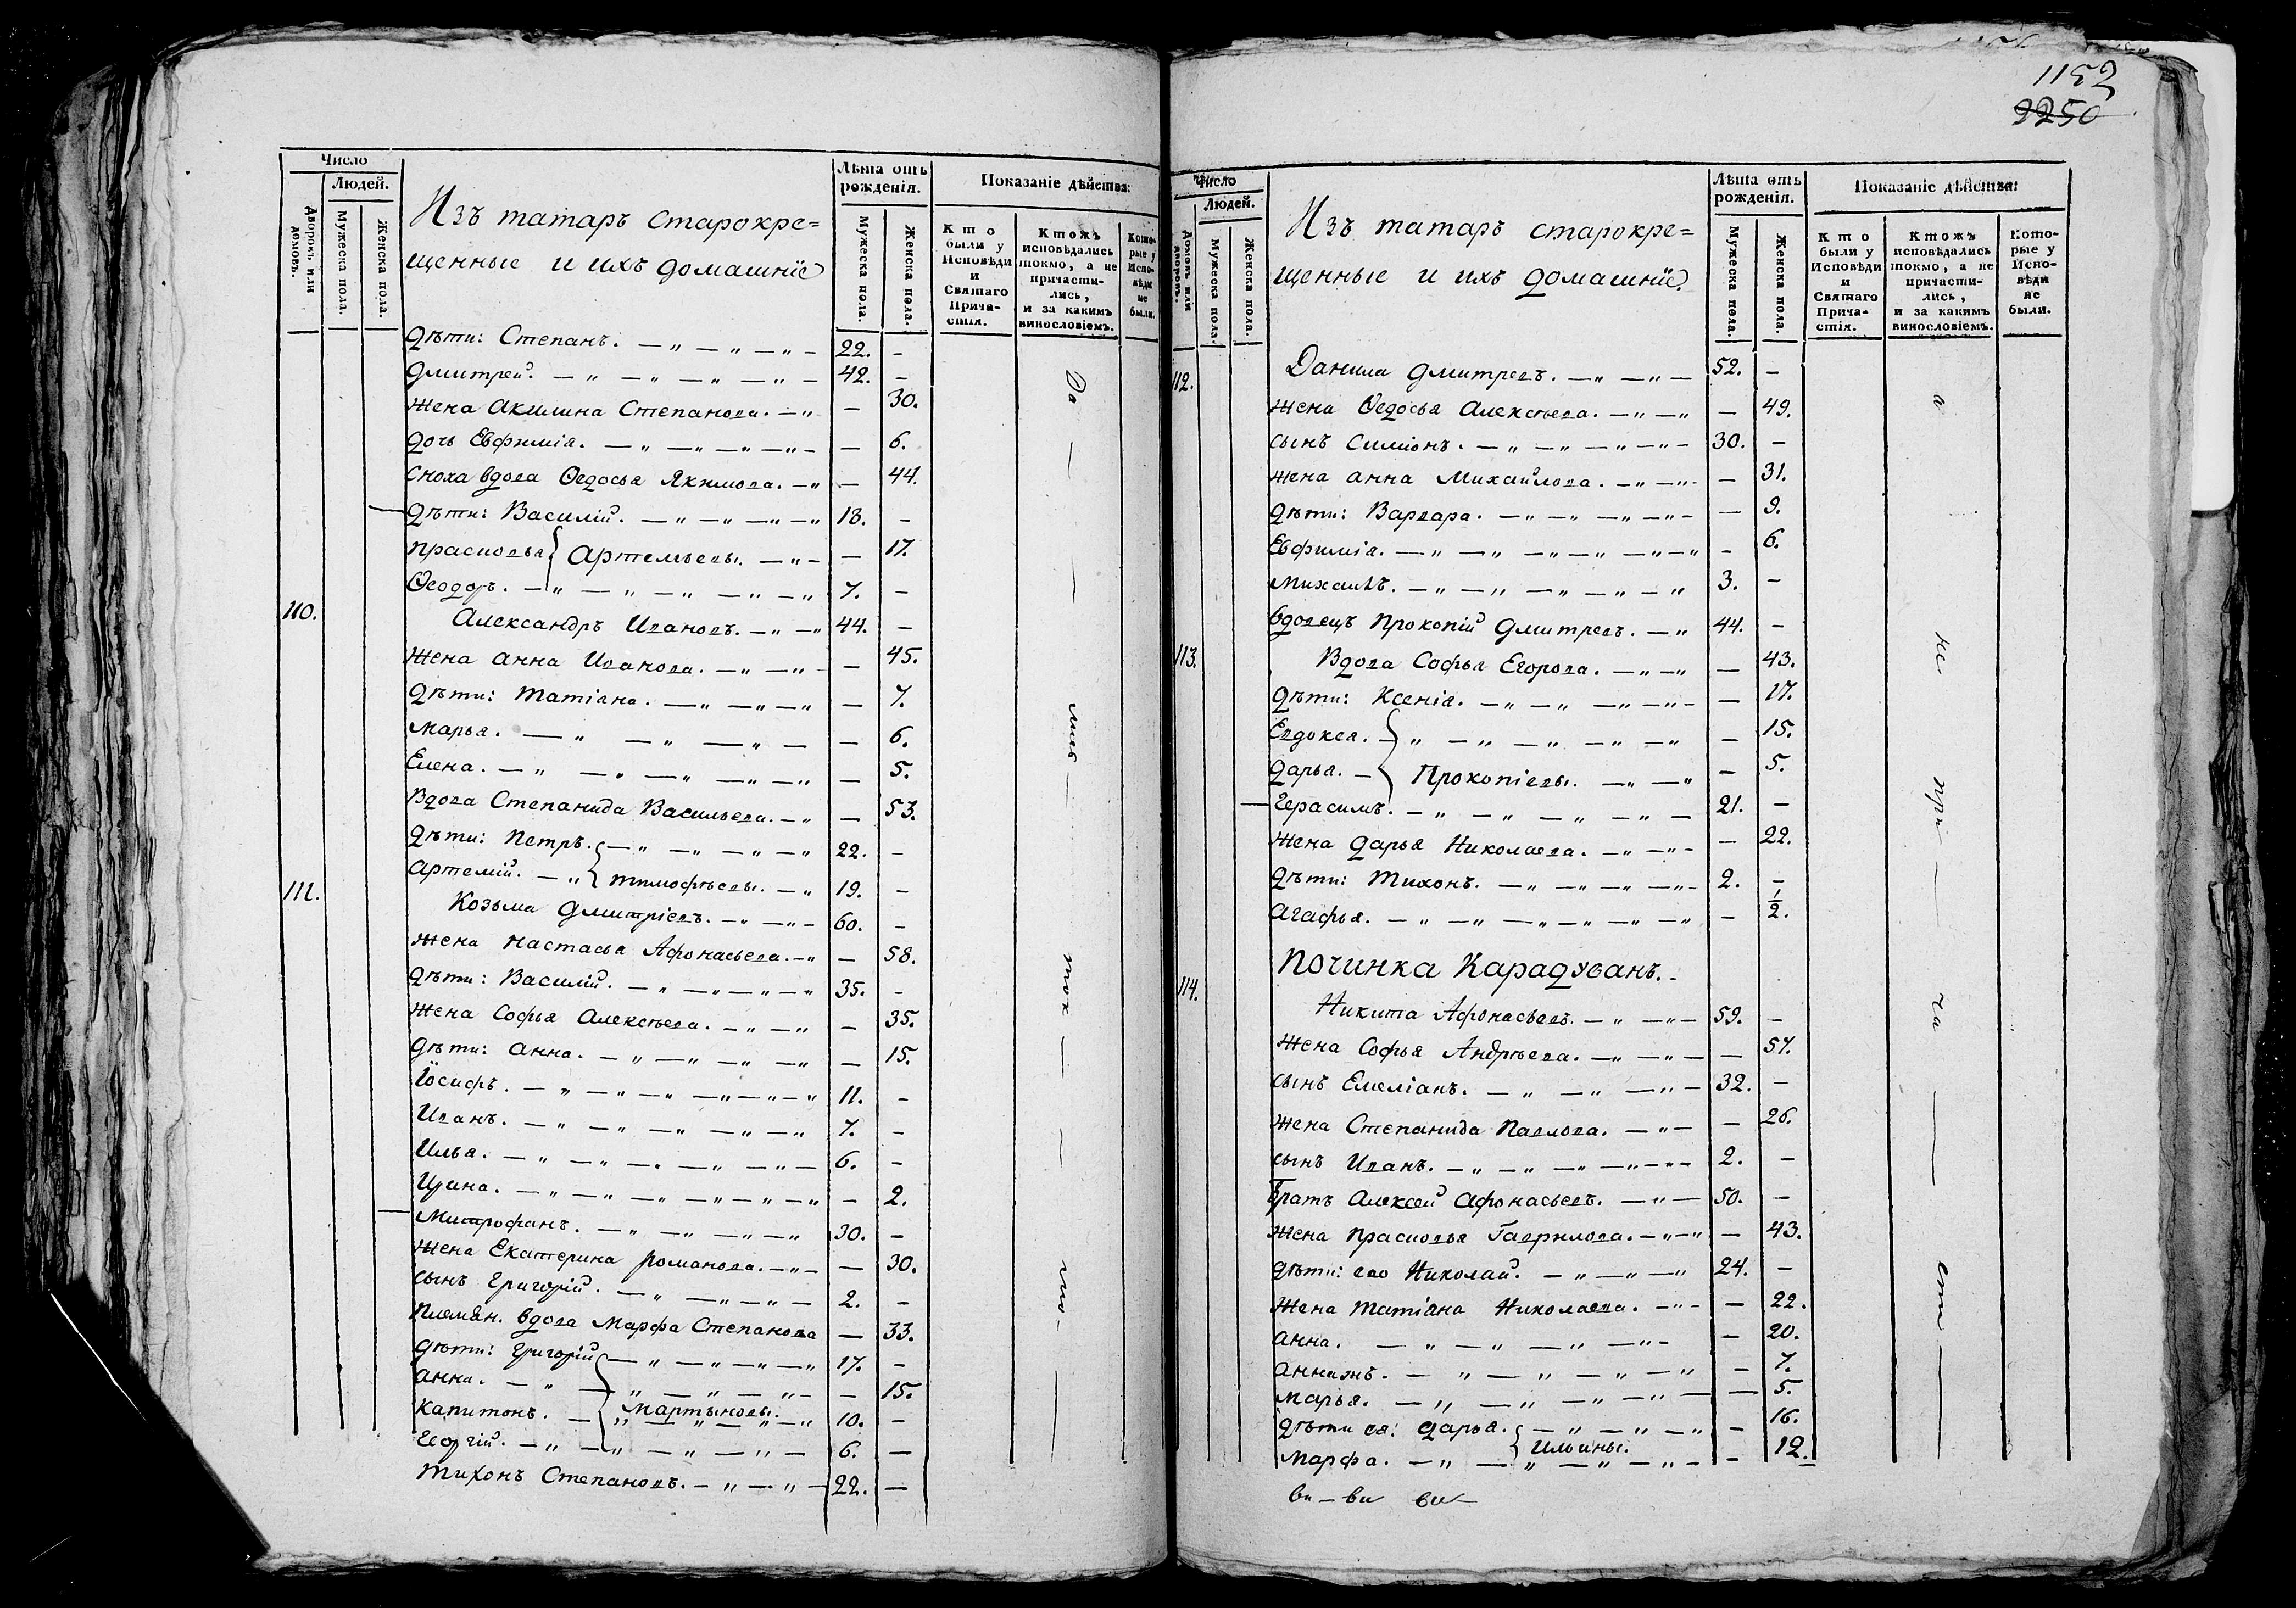 1152
2250
Число
Людей.
Дворовъ или домовъ.
Мужеска пола.
Женска пола.
Изъ татаръ старокре=
щенные и ихъ домашніе
Лѣта отъ рожденія.
Мужеска пола.
Женска пола.
Показаніе дѣйства:
Кто были у Исповѣди и Святаго Прича-стія.
Ктожъ исповѣдались токмо, а не причасти-лись, и за какимъ винословіемъ.
Кото-рые у Испо-вѣди не были.
Дѣти: Степанъ. 22. -
Дмитрей. 42. -
Жена Акилина Степанова. - 30.
Дочь Евфимія. - 6.
Сноха вдова Ѳедосья Якимова. - 44.
Дѣти: Василій. 18. -
Прасковья } Артемьевы. - 17.
Ѳеодоръ. 7. -
110. Александръ Ивановъ. 44. -
Жена Анна Иванова. - 45.
Дѣти: Татіана. - 7.
Марья. - 6.
Елена. - 5.
Вдова Степанида Васильева. - 53.
Дѣти: Петръ. 22. -
Артемій. } Тимофѣевы. 19. -
111. Козьма Дмитріевъ. 60. -
Жена Настасья Афонасьева. - 58.
Дѣти: Василій. 35. -
Жена Софья Алексѣева. - 35.
Дѣти: Анна. - 15.
Іосифъ. 11. -
Иванъ. 7. -
Илья. 6. -
Ирина. - 2.
Митрофанъ. 30. -
Жена Екатерина Романова. - 30.
сынъ Григорій. 2. -
Племян. вдова Марфа Степанова - 33.
Дѣти: Григорій 17. -
Анна. - 15.
Капитонъ. } Мартыновы. 10. -
Георгій. 6. -
Тихонъ Степановъ. 22. -
Да — — лись — ток — — мо — —
Число
Людей.
Домовъ или дворовъ.
Мужеска пола.
Женска пола.
Изъ татаръ старокре=
щенные и ихъ домашніе.
Лѣта отъ рожденія.
Мужеска пола.
Женска пола.
Показаніе дѣйства:
Кто были у Исповѣди и Святаго Прича-стія.
Ктожъ исповѣдались токмо, а не причасти-лись, и за какимъ винословіемъ.
Кото-рые у Испо-вѣди не были.
112. Данила Дмитревъ. 52. -
Жена Ѳедосья Алексѣева. - 49.
сынъ Симіонъ. 30. -
Жена Анна Михайлова. - 31.
Дѣти: Варвара. - 9.
Евфимія. - 6.
Михаилъ. 3. -
Вдовецъ Прокопій Дмитревъ. 44. -
113. Вдова Софья Егорова. - 43.
Дѣти: Ксенія. - 17.
Евдокея. - 15.
Дарья. } Прокопіевы. - 5.
Герасимъ. 21. -
Жена Дарья Николаева. - 22.
Дѣти: Тихонъ. 2. -
Агафья. - 1/2.
Починка Карадуванъ.
114. Никита Афонасьевъ. 59. -
Жена Софья Андрѣева. - 57.
сынъ Емеліанъ. 32. -
Жена Степанида Павлова. - 26.
сынъ Иванъ. 2. -
Братъ Алексей Афонасьевъ. 50. -
Жена Прасковья Гаврилова. - 43.
Дѣти: его Николай. 24. -
Жена Татіана Николаева. - 22.
Анна. - 20.
- 7.
Марья. - 5.
Дѣти ея: Дарья. - 16.
Марфа. } Ильины. - 12.
а не при — ча — сти —